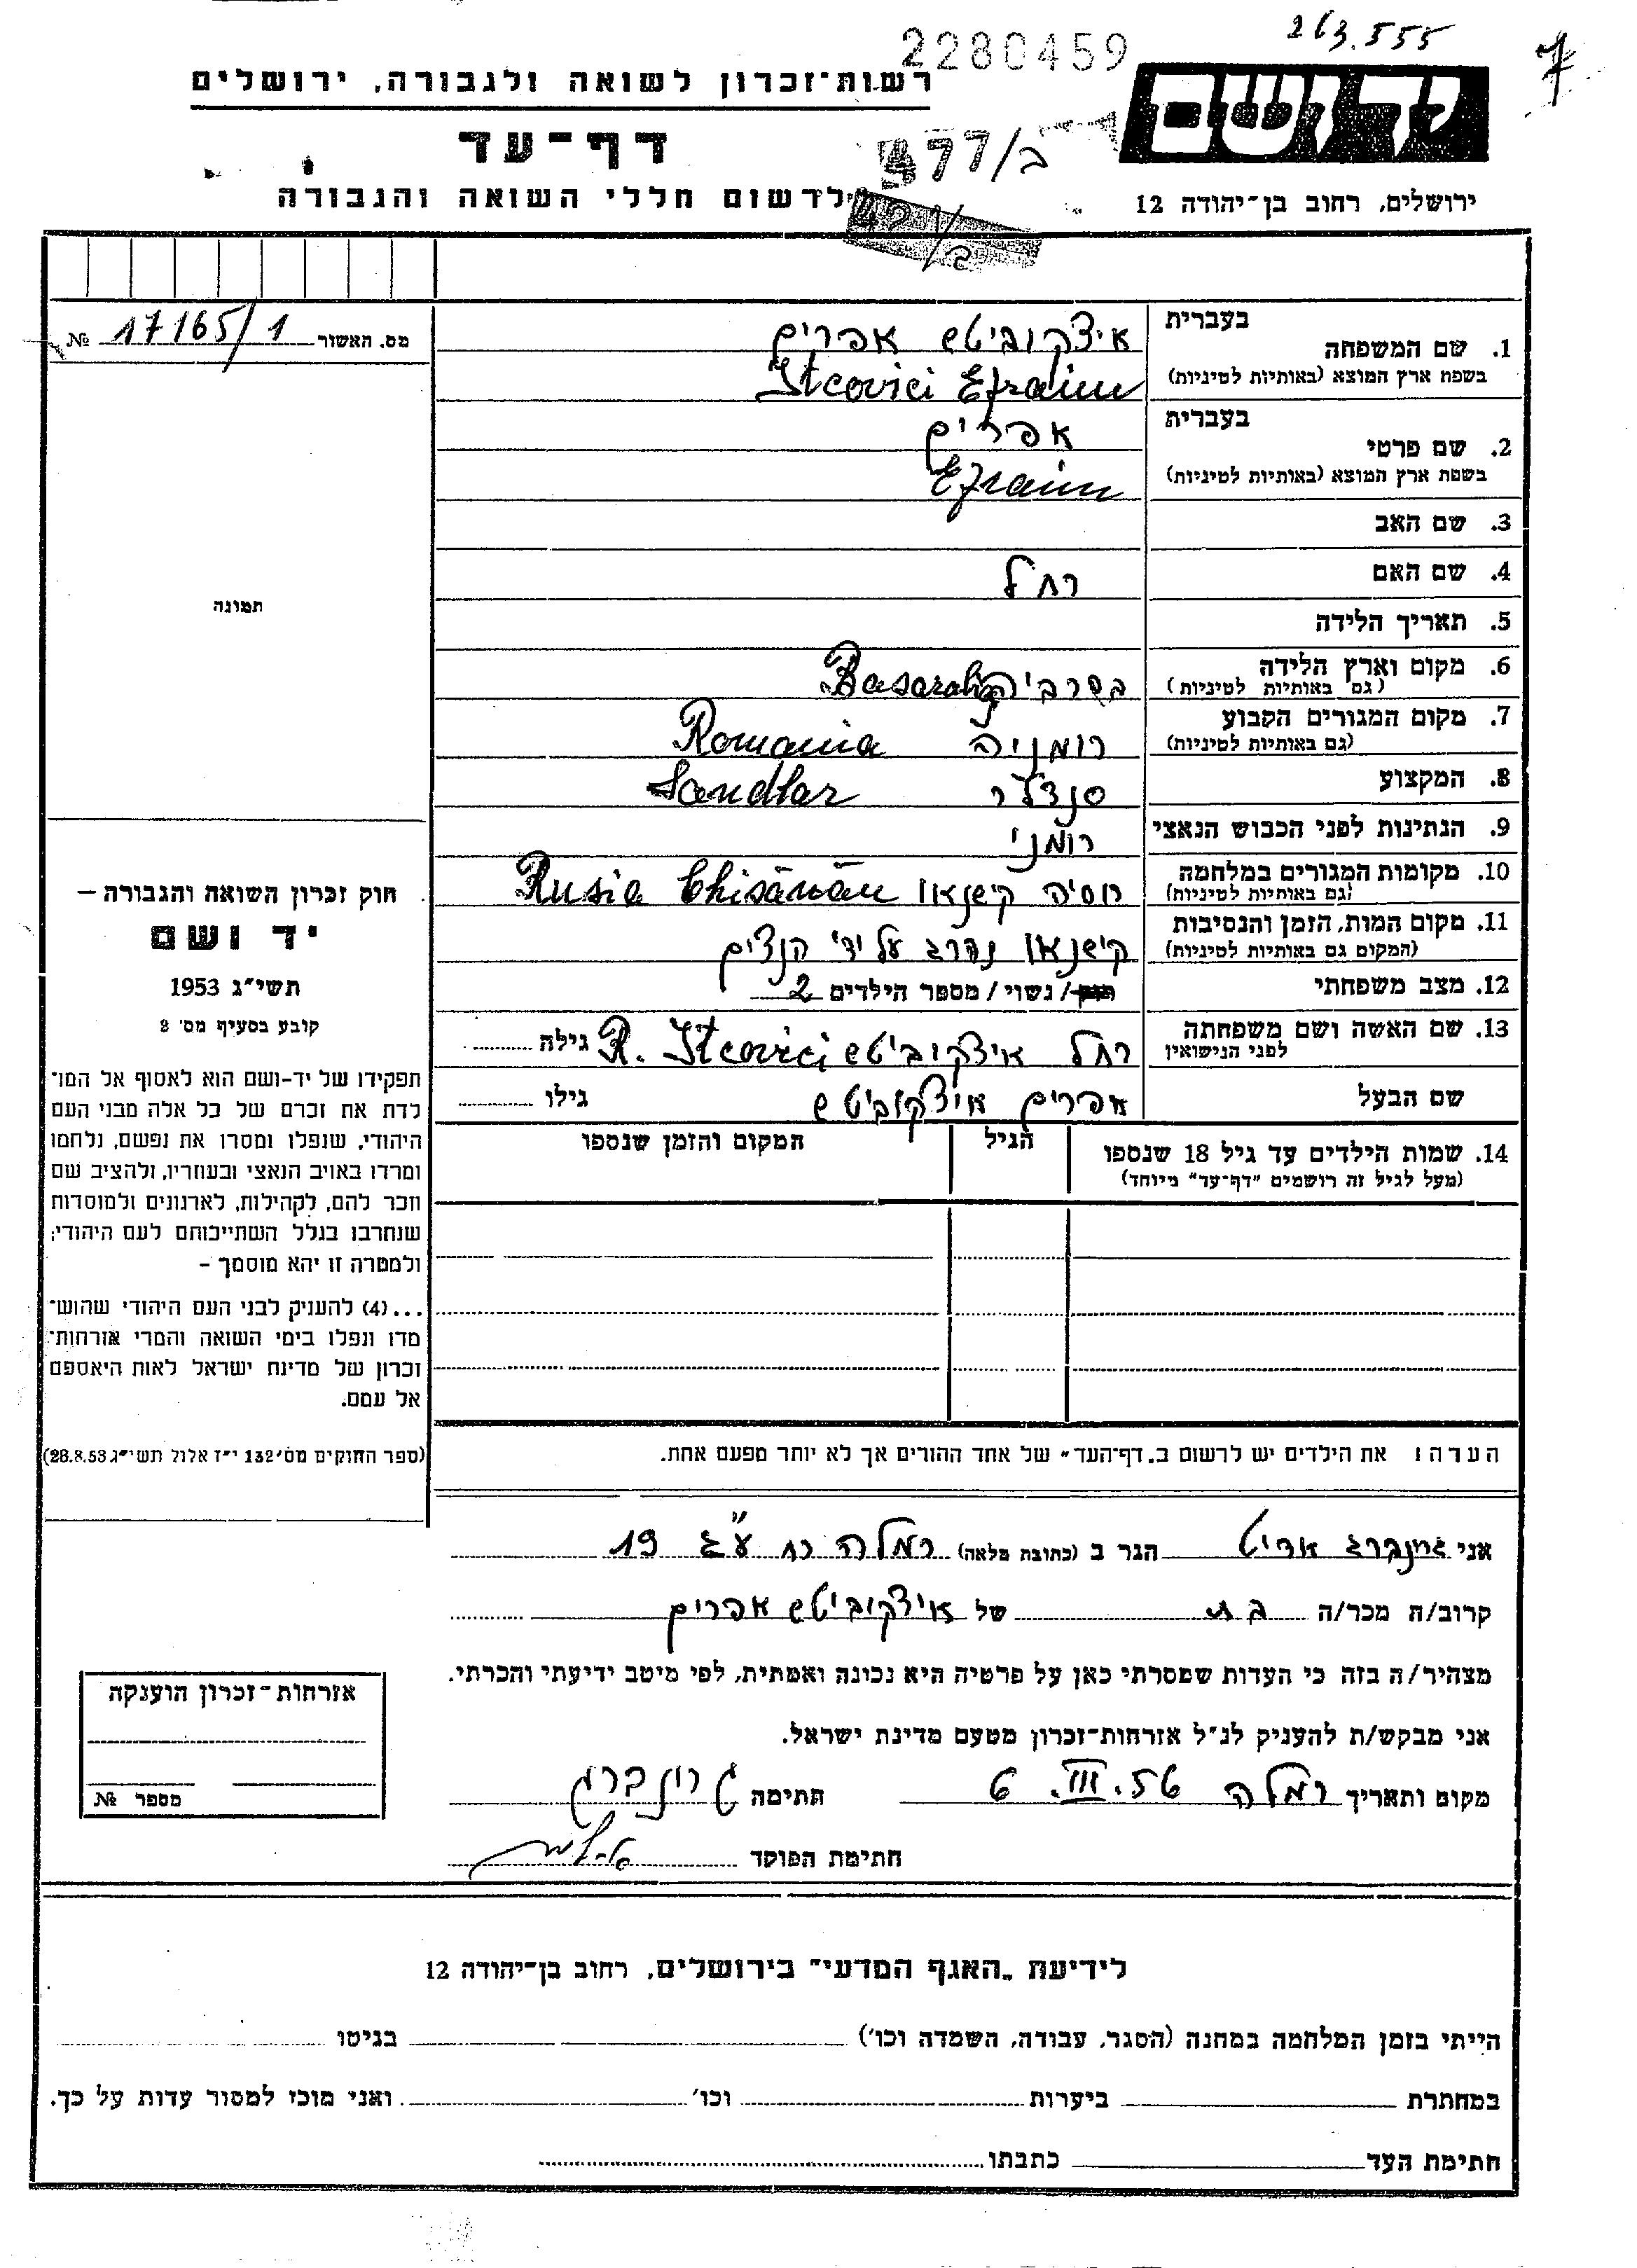 263.555
7
2280459
ידושם
רשות־זכרון לשואה ולגבורה, ירושלים
דף־עד
477/ב
לרשום חללי השואה והגבורה
ירושלים, רחוב בן־יהודה 12
מס. האשור 17165/1 №
1. שם המשפחה בעברית איצקוביטש אפרים
בשפת ארץ המוצא (באותיות לטיניות) Itcovici Efraim
2. שם פרטי בעברית אפרים
בשפת ארץ המוצא (באותיות לטיניות) Efraim
3. שם האב
4. שם האם רחל
תמונה
5. תאריך הלידה
6. מקום וארץ הלידה בסרביה Basarabia
(גם באותיות לטיניות)
7. מקום המגורים הקבוע רומניה Romania
(גם באותיות לטיניות)
8. המקצוע סנדלר Sandlar
9. הנתינות לפני הכבוש הנאצי רומני
10. מקומות המגורים במלחמה רוסיה קישנאו Rusia Chisănău
(גם באותיות לטיניות)
11. מקום המות, הזמן והנסיבות קישנאו נהרג על ידי הנצים
(המקום גם באותיות לטיניות)
12. מצב משפחתי רווק/נשוי/מספר הילדים 2
13. שם האשה ושם משפחתה רחל איצקוביטש R. Itcovici גילה
לפני הנישואין
שם הבעל אפרים איצקוביטש גילו
14. שמות הילדים עד גיל 18 שנספו הגיל המקום והזמן שנספו
(מעל לגיל זה רושמים "דף־עד" מיוחד)
חוק זכרון השואה והגבורה –
יד ושם
תשי״ג 1953
קובע בסעיף מס׳ 2
תפקידו של יד-ושם הוא לאסוף אל המו־
לדת את זכרם של כל אלה מבני העם
היהודי, שנפלו ומסרו את נפשם, נלחמו
ומרדו באויב הנאצי ובעוזריו, ולהציב שם
וזכר להם, לקהילות, לארגונים ולמוסדות
שנחרבו בגלל השתייכותם לעם היהודי;
ולמטרה זו יהא מוסמך –
...(4) להעניק לבני העם היהודי שהוש־
מדו ונפלו בימי השואה והמרי אזרחות־
זכרון של מדינת ישראל לאות היאספם
אל עמם.
(ספר החוקים מס׳ 132 י״ז אלול תשי״ג 28.8.53)
הערה: את הילדים יש לרשום ב„דף־העד״ של אחד ההורים אך לא יותר מפעם אחת.
אני גרינברג הגר ב (כתובת מלאה) רמלה רח 19
קרוב/ה מכר/ה בת של איצקוביטש אפרים
מצהיר/ה בזה כי העדות שמסרתי כאן על פרטיה היא נכונה ואמתית, לפי מיטב ידיעתי והכרתי.
אני מבקש/ת להעניק לנ״ל אזרחות־זכרון מטעם מדינת ישראל.
מקום ותאריך רמלה 6.III.56 חתימה גרונברג
חתימת הפוקד
אזרחות־זכרון הוענקה
מספר №
לידיעת „האגף המדעי״ בירושלים, רחוב בן־יהודה 12
הייתי בזמן המלחמה במחנה (הסגר, עבודה, השמדה וכו׳) בגיטו
במחתרת ביערות וכו׳ ואני מוכן למסור עדות על כך.
חתימת העד כתבתו